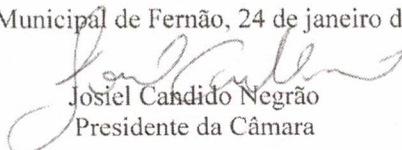 Municipal de Fernão, 24 de janeiro d
Josiel Candido Negrão
Presidente da Câmara